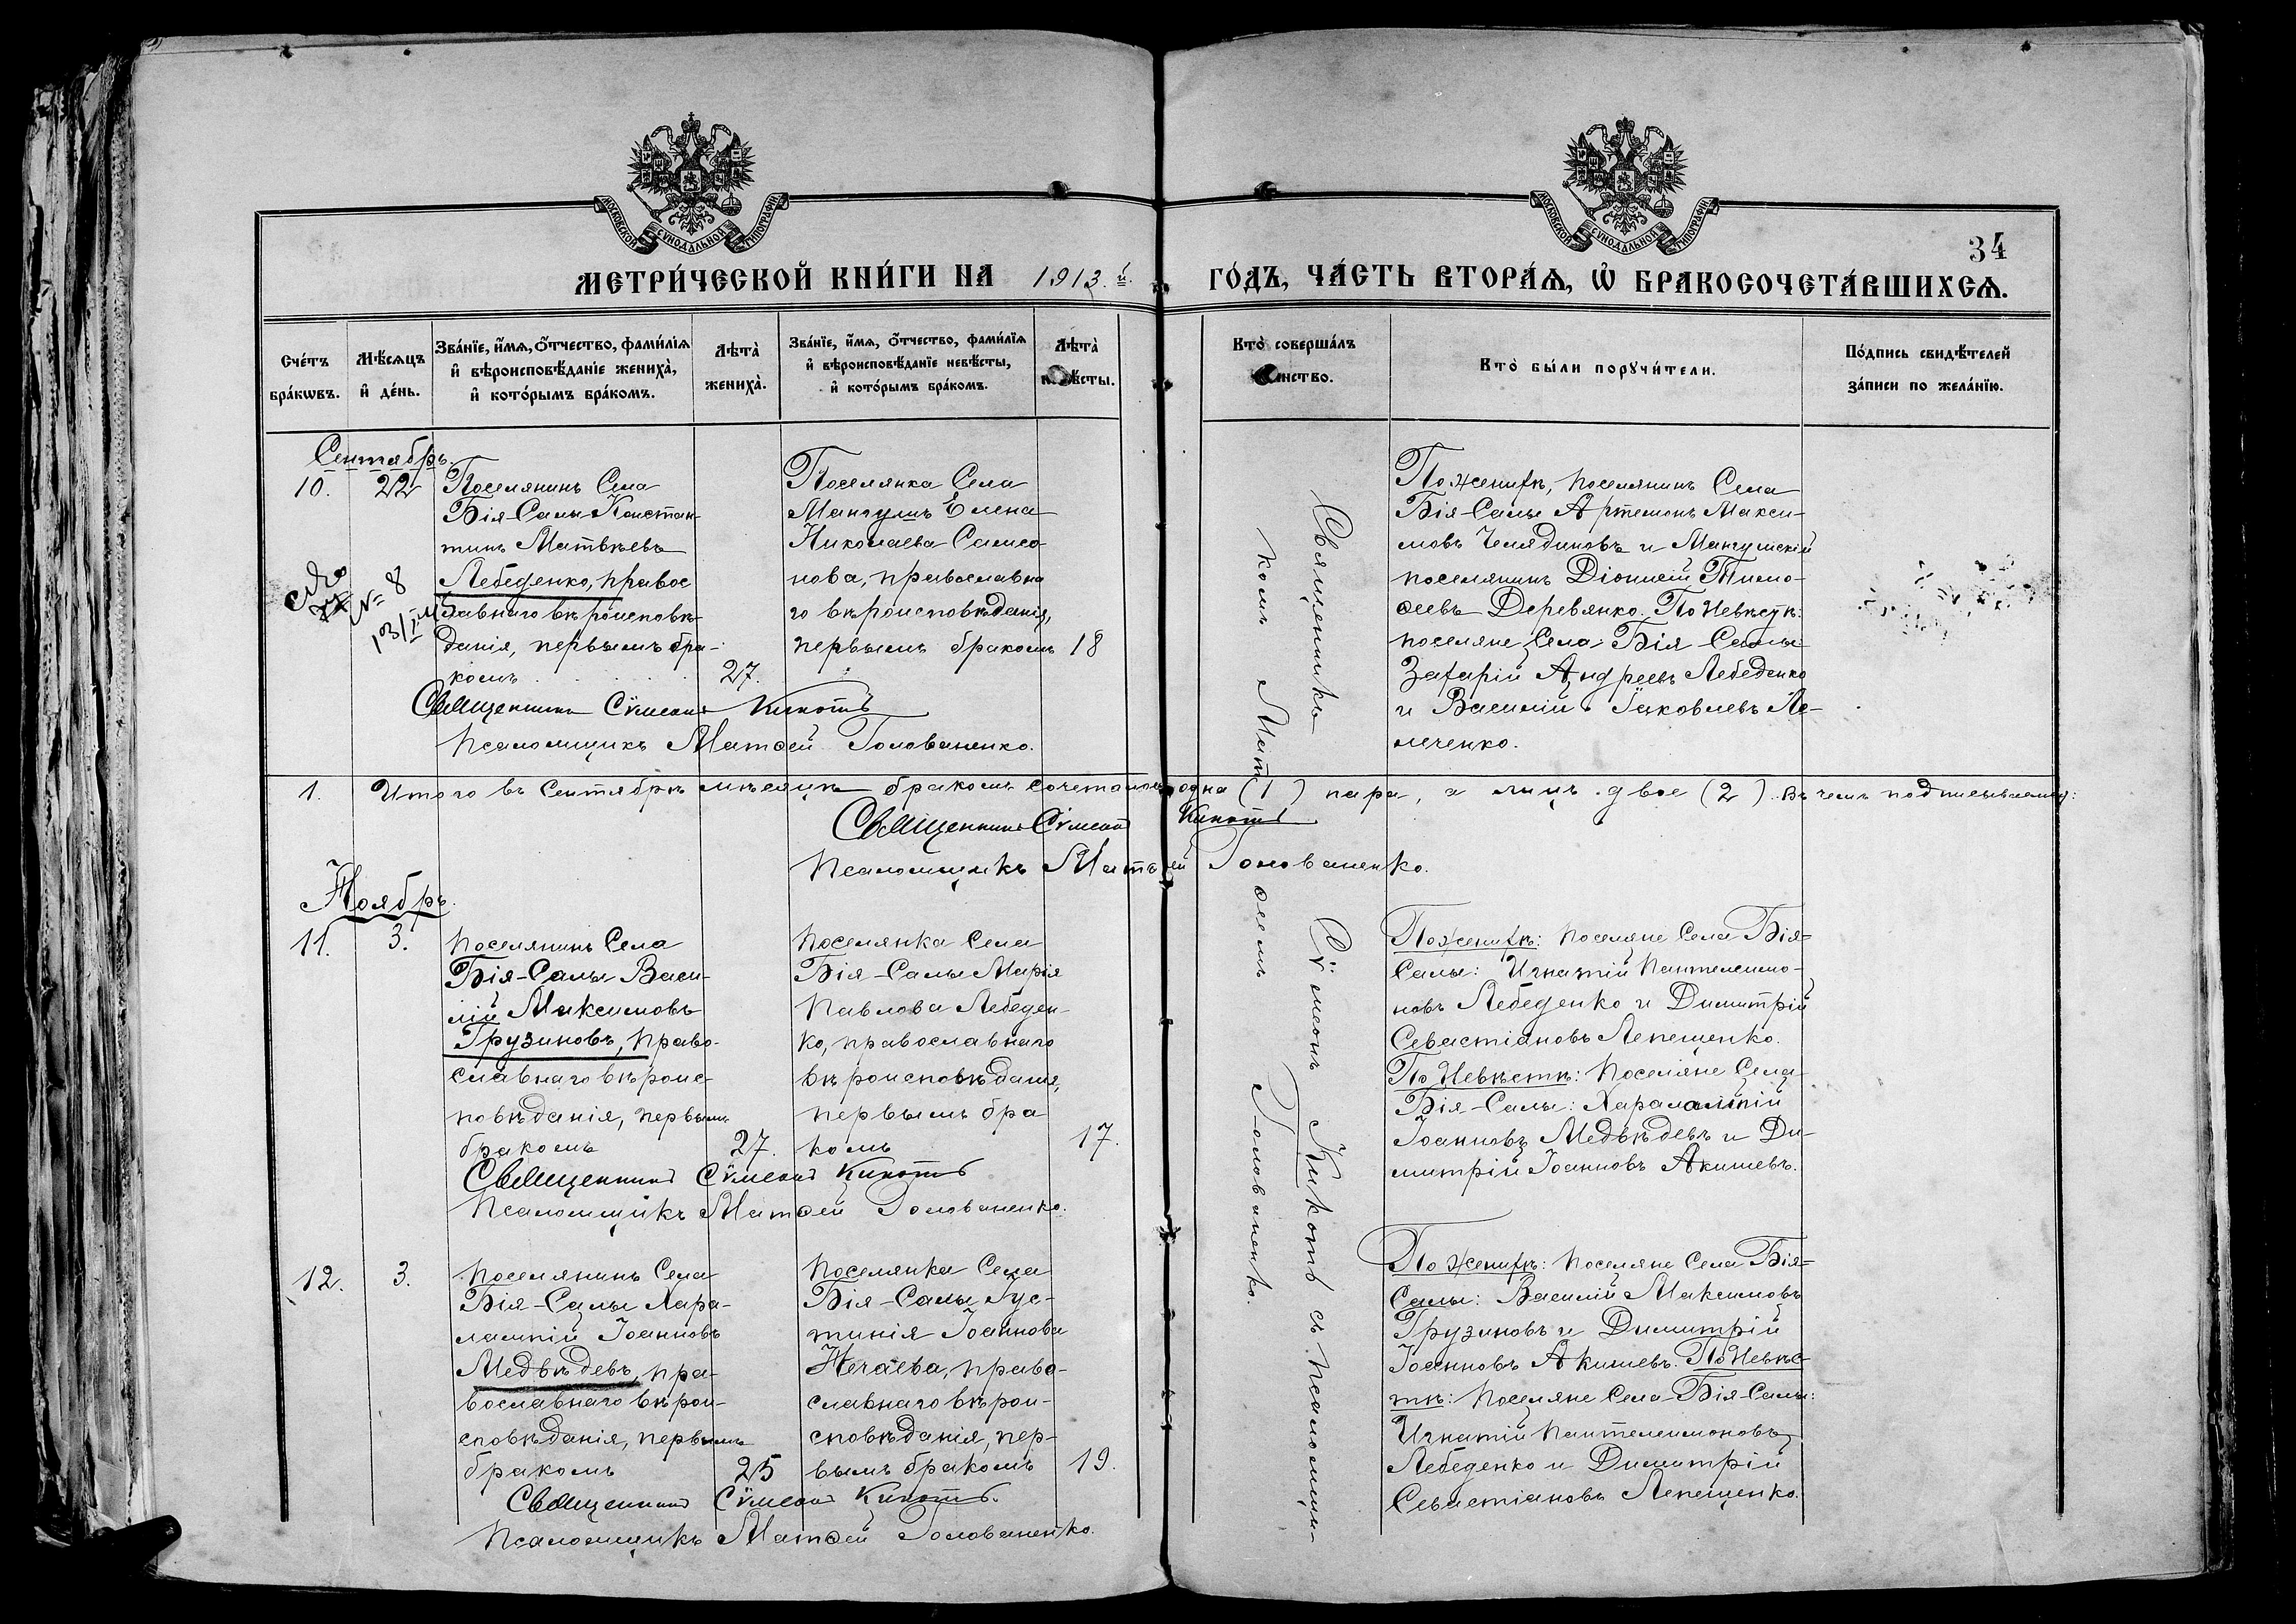 МОСКОВСКОЙ СѴНОДАЛЬНОЙ ТИПОГРАФІИ
МОСКОВСКОЙ СѴНОДАЛЬНОЙ ТИПОГРАФІИ
34
МЕТРИ́ЧЕСКОЙ КНИ́ГИ НА 1913.й. ГО́ДЪ, ЧА́СТЬ ВТОРА́Ѧ, Ѡ҆ БРАКОСОЧЕТА́ВШИХСѦ.
Сче́тъ
бра́кѡвъ.
Мѣ́сяцъ
и҆ де́нь.
Зва́нїе, и҆́мѧ, ѻ҆́тчество, фами́лїѧ
и҆ вѣроисповѣ́данїе жениха̀,
и҆ кото́рымъ бра́комъ.
Лѣта̀
жениха̀.
Зва́нїе, и҆́мѧ, ѻ҆́тчество, фами́лїѧ
и҆ вѣроисповѣ́данїе невѣ́сты,
и҆ кото́рымъ бра́комъ.
Лѣта̀
Кто̀ соверша́лъ
Кто̀ бы́ли порꙋчи́тели.
По́дпись свидѣ́телей
за́писи по жела́нїю.
Сентябрь.
10. 22
Поселянинъ Села
Бія-Салы Констан-
тинъ Матвѣевъ
Лебеденко, правос
лавнаго вѣроисповѣ-
данія, первымъ бра-
комъ 27.
№ 8
Поселянка Села
Мангушъ Елена
Николаева Самсо-
нова, православна
го вѣроисповѣданія,
первымъ бракомъ 18
Священникъ Сѵмеонъ Кикотъ
Псаломщикъ Матѳей Голованенко.
По женихѣ, поселянинъ Села
Бія-Салы Артемонъ Макси-
мовъ Челядиновъ и Мангушскій
поселянинъ Діонисій Тимо-
ѳеевъ Деревянко. По Невѣстѣ:
поселяне Села Бія-Салы
Захарій Андреевъ Лебеденко
и Василій Іяковлевъ Ле-
меченко.
1. Итого въ Сентябрѣ мѣсяцѣ бракомъ сочеталось одна (1) пара, а лицъ двое (2). Въ чемъ подписываемся:
Священникъ Сѵмеонъ Кикотъ
Псаломщикъ Матѳей Голованенко.
Священникъ Сѵмеонъ Кикотъ съ псаломщи-
комъ Матѳеемъ Голованенко.
Ноябрь.
11. 3.
Поселянинъ Села
Бія-Салы Васи-
лій Максимовъ
Грузиновъ, право-
славнаго вѣроис-
повѣданія, первымъ
бракомъ 27.
Поселянка Села
Бія-Салы Марія
Павлова Лебеден-
ко, православнаго
вѣроисповѣданія,
первымъ бра
комъ 17.
Священникъ Сѵмеонъ Кикотъ
Псаломщикъ Матѳей Голованенко.
По женихѣ: поселяне Села Бія-
Салы: Игнатій Пантелеимо-
новъ Лебеденко и Димитрій
Севастіановъ Лепещенко.
По Невѣстѣ: поселяне Села
Бія-Салы: Харалампій
Іоанновъ Медвѣдевъ и Ди-
митрій Іоанновъ Акишевъ.
12. 3.
Поселянинъ Села
Бія-Салы Хара-
лампій Іоанновъ
Медвѣдевъ, пра-
вославнаго вѣрои-
сповѣданія, первымъ
бракомъ 25
Поселянка Села
Бія-Салы Іус-
тинія Іоаннова
Нечаева, право-
славнаго вѣрои-
сповѣданія, пер-
вымъ бракомъ 19.
Священникъ Сѵмеонъ Кикотъ.
Псаломщикъ Матѳей Голованенко.
По женихѣ: поселяне Села Бія-
Салы: Василій Максимовъ
Грузиновъ и Димитрій
Іоанновъ Акишевъ. По Невѣс-
тѣ: Поселяне Села Бія-Салы:
Игнатій Пантелеимоновъ
Лебеденко и Димитрій
Севастіановъ Лепещенко.